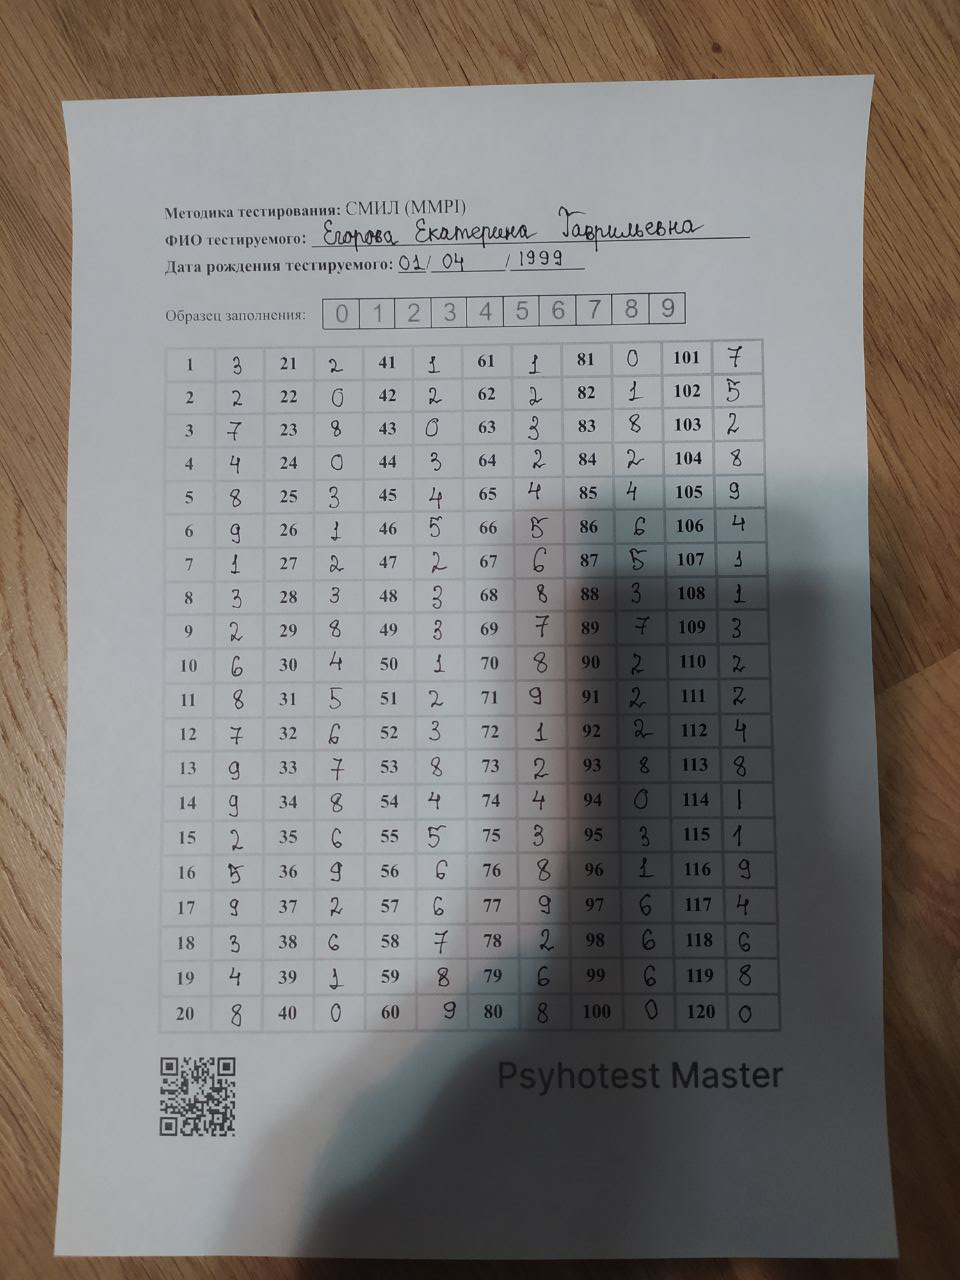 Методика тестирования: СМИЛ (MMPI)
ФИО тестируемого: Егорова Екатерина Гаврильевна
Дата рождения тестируемого: 01/ 04 / 1999
Образец заполнения: 0 1 2 3 4 5 6 7 8 9
1 3 21 2 41 1 61 1 81 0 101 7
2 2 22 0 42 2 62 2 82 1 102 5
3 7 23 8 43 0 63 3 83 8 103 2
4 4 24 0 44 3 64 2 84 2 104 8
5 8 25 3 45 4 65 4 85 4 105 9
6 9 26 1 46 5 66 5 86 6 106 4
7 1 27 2 47 2 67 6 87 5 107 1
8 3 28 3 48 3 68 8 88 3 108 1
9 2 29 8 49 3 69 7 89 7 109 3
10 6 30 4 50 1 70 8 90 2 110 2
11 8 31 5 51 2 71 9 91 2 111 2
12 7 32 6 52 3 72 1 92 2 112 4
13 9 33 7 53 8 73 2 93 8 113 8
14 9 34 8 54 4 74 4 94 0 114 1
15 2 35 6 55 5 75 3 95 3 115 1
16 5 36 9 56 6 76 8 96 1 116 9
17 9 37 2 57 6 77 9 97 6 117 4
18 3 38 6 58 7 78 2 98 6 118 6
19 4 39 1 59 8 79 6 99 6 119 8
20 8 40 0 60 9 80 8 100 0 120 0
Psyhotest Master